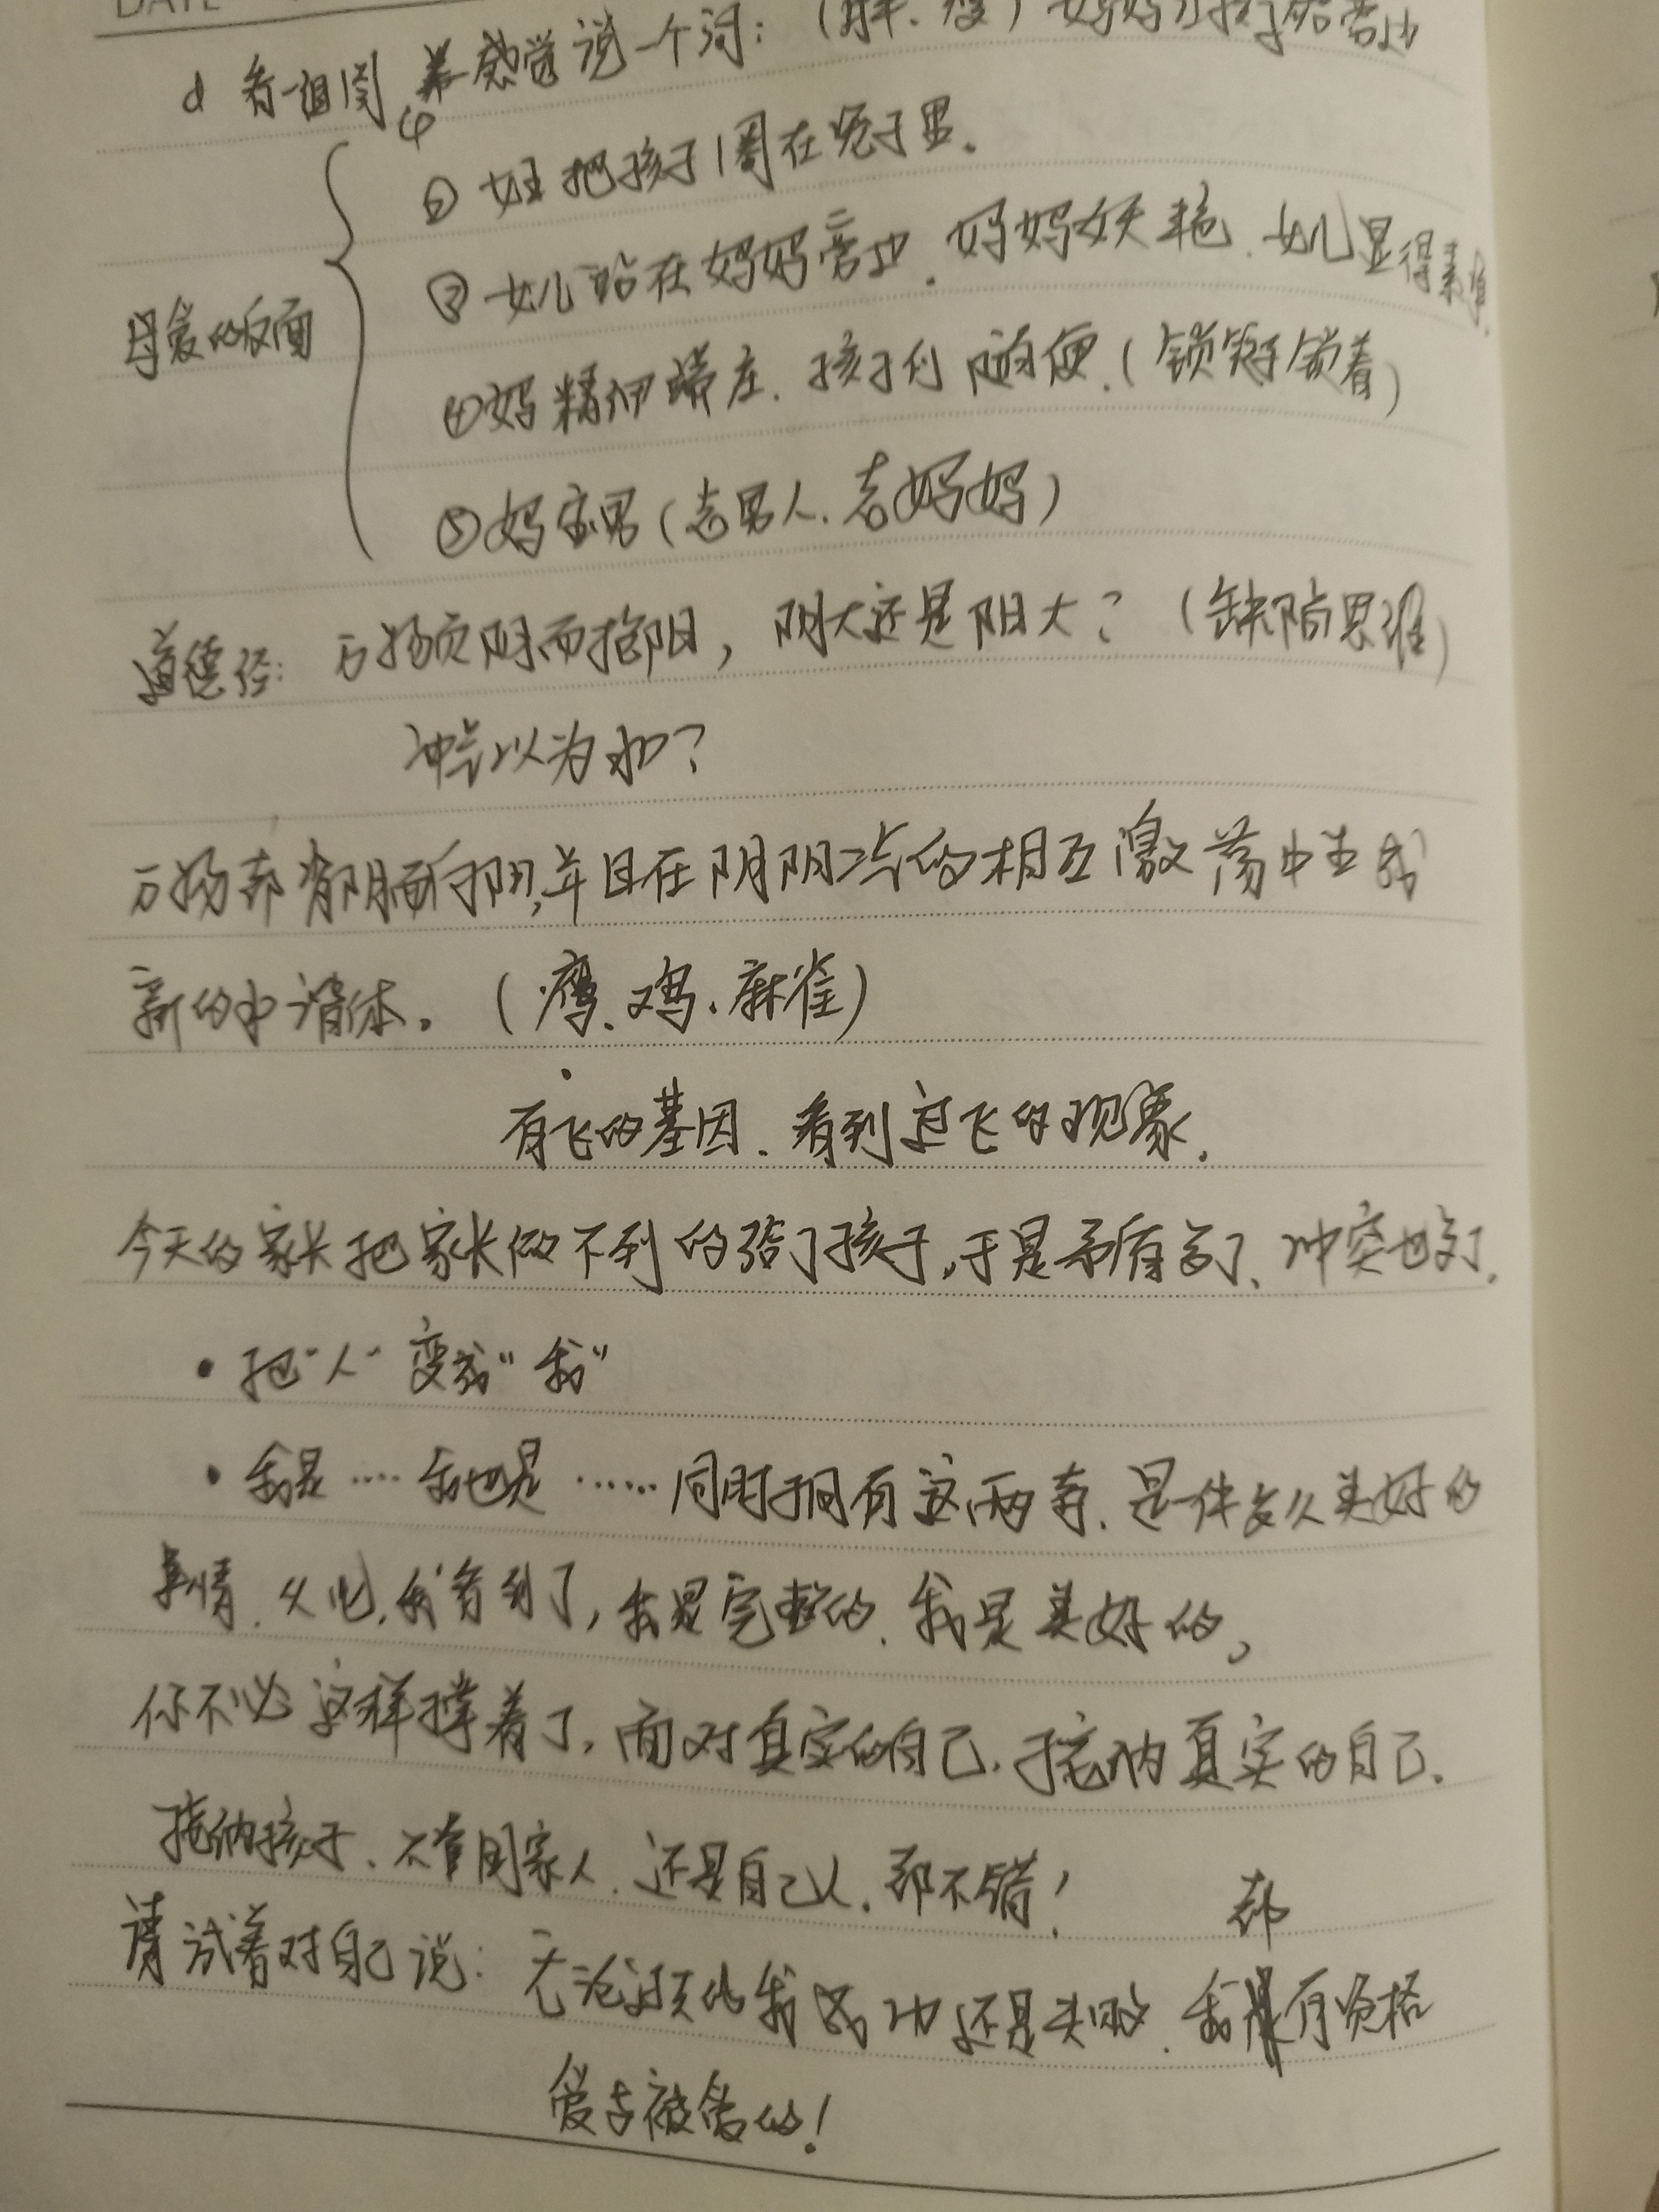 DATE
看一组图 凭感觉说一个词：（胖、瘦）妈妈 孩子 旁边
② 女王把孩子 在笼子里。
母爱的反面
③ 女儿站在妈妈旁边，妈妈妖艳、女儿显得素
④ 妈精神端庄，孩子 随便。（锁链子锁着）
⑤ 妈宝男（老男人、老妈妈）
道德经：万物负阴而抱阳，阴大还是阳大？（缺陷思维）
冲气以为和？
万物都背阴而向阳，并且在阴阴二气的相互激荡中生成
新的和谐体。（鹰、鸡、麻雀）
有飞的基因、看到过飞的现象．
今天的家长把家长做不到的给了孩子，于是矛盾多了、冲突也多了．
• 把“人”变成“我”
• 我是……我也是……同时拥有这两者、是一件多么美好的
事情、 我看到了，我是完整的、我是美好的，
你不必这样撑着了，面对真实的自己．接纳真实的自己．
接纳孩子、不管 家人、还是自己人，都不错！
都
请试着对自己说：无论 我成功还是失败、我是有资格
爱与被爱的！